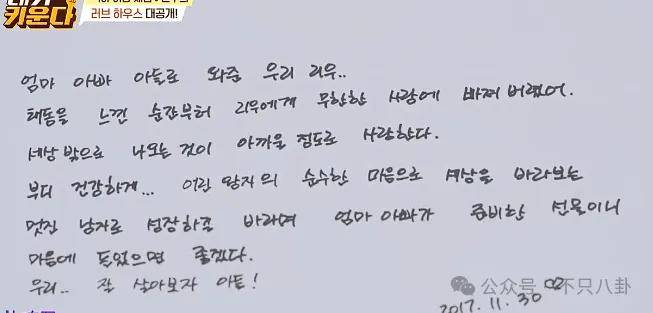 내가
키운다
러브 하우스 대공개!
엄마 아빠 아들로 와준 우리 리우..
태동을 느낀 순간부터 리우에게 무한한 사랑에 빠져 버렸어.
세상 밖으로 나오는 것이 아까울 정도로 사랑한다.
부디 건강하게... 어린 왕자의 순수한 마음으로 세상을 바라보는
멋진 남자로 성장하길 바라며 엄마 아빠가 준비한 선물이니
마음에 들었으면 좋겠다.
우리.. 잘 살아보자 아들!
2017. 11. 30
公众号 不只八卦